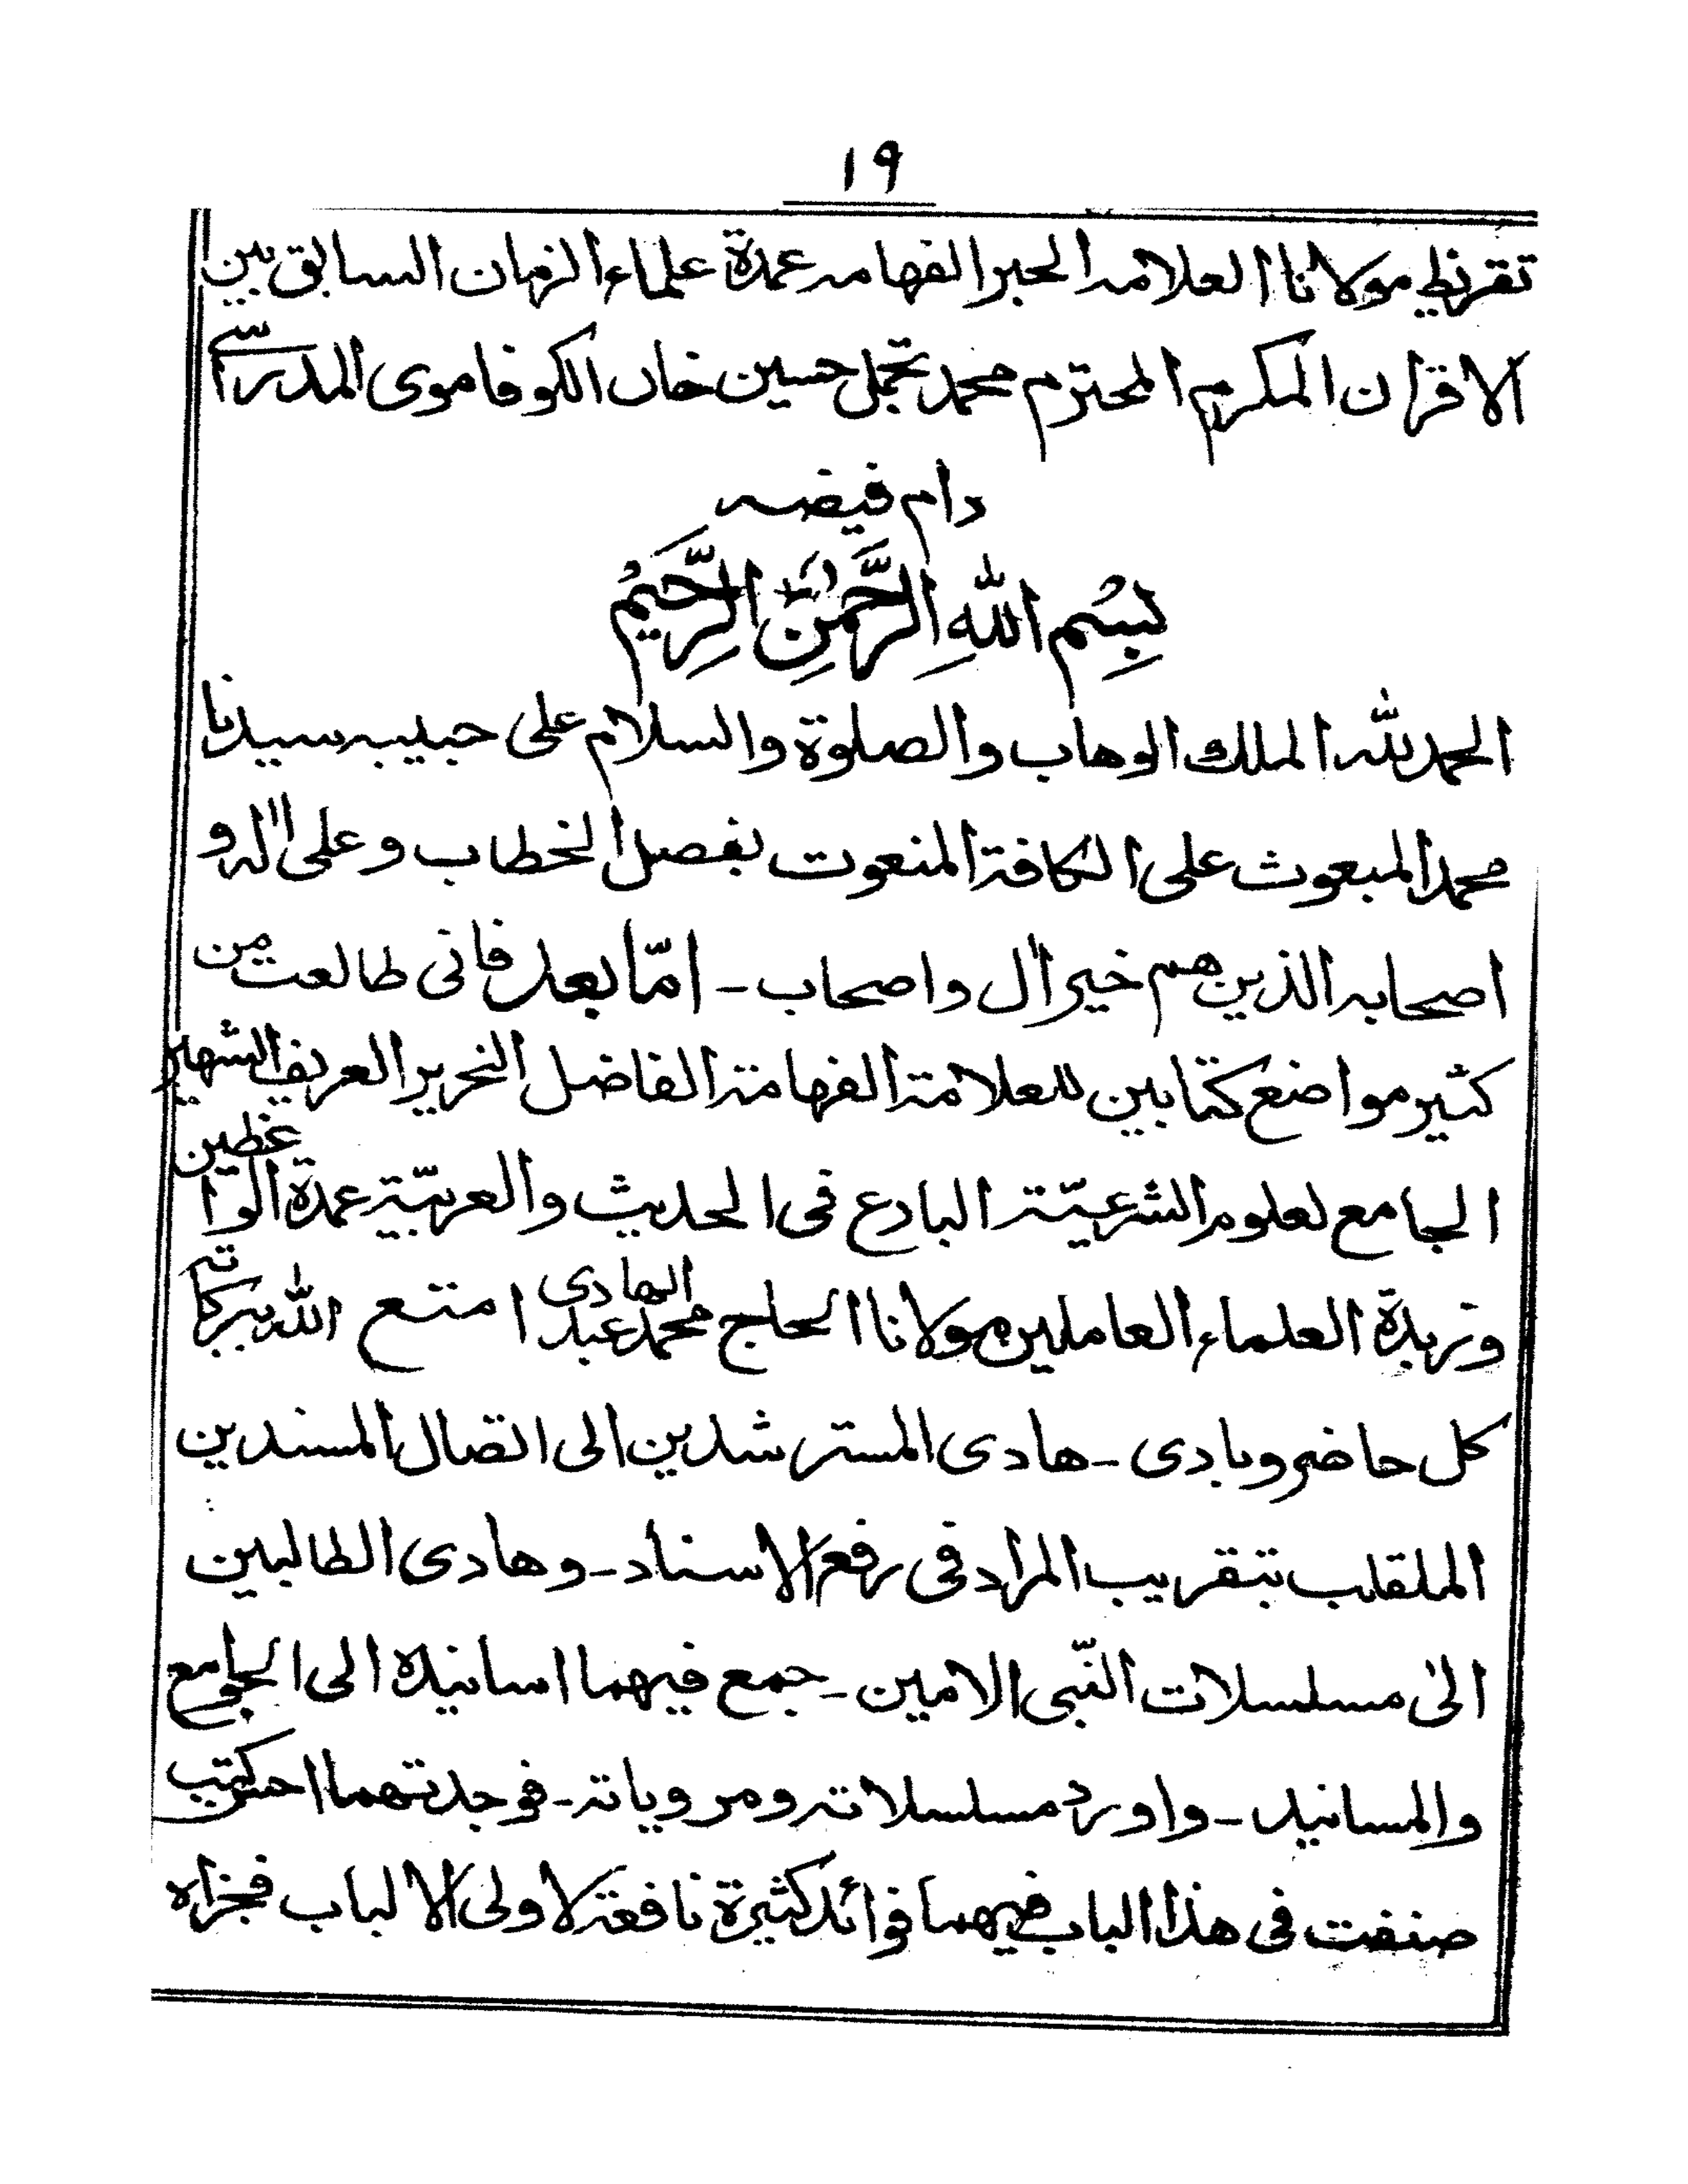 ١٩
تقريظ مولانا العلامه الحبر الفهامه عمدة علماء الزمان السابق بين
الاقران المكرم المحترم محمد تجمل حسين خان الكوفاموى المدراسى
دام فيضه
بِسْمِ اللّٰهِ الرَّحْمٰنِ الرَّحِيْمِ
الحمد للّٰه الملك الوهاب والصلوة والسلام على حبيبه سيدنا
محمد المبعوث على الكافة المنعوت بفصل الخطاب وعلى اٰله و
اصحابه الذين هم خير اٰل واصحاب - امّا بعد فانى طالعت من
كثير مواضع كتابين للعلامة الفهامة الفاضل النحرير العريف الشهير
الجامع لعلوم الشرعيّة البارع فى الحديث والعربيّة عمدة الواعظين
وزبدة العلماء العاملين مولانا الحاج محمد عبد الهادى امتع اللّٰه ببركاته
كل حاضر وبادى - هادى المسترشدين الى اتصال المسندين
الملقلب بتقريب المراد فى رفع الاسناد - وهادى الطالبين
الىٰ مسلسلات النّبى الامين - جمع فيهما اسانيده الى الجوامع
والمسانيد - واورد مسلسلاته ومروياته - فوجدتهما احسن كتب
صنفت فى هذا الباب فيهما فوائد كثيرة نافعة لاولى الالباب فجزاه